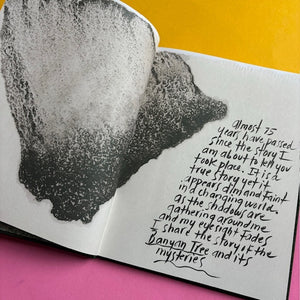 Almost 75
years have passed
since the story I
am about to tell you
took place. It is a
true story yet it
appears dim and faint
in a changing world.
as the shadows are
gathering around me
and my eyesight fades
I share the story of the
Banyan Tree and its
mysteries